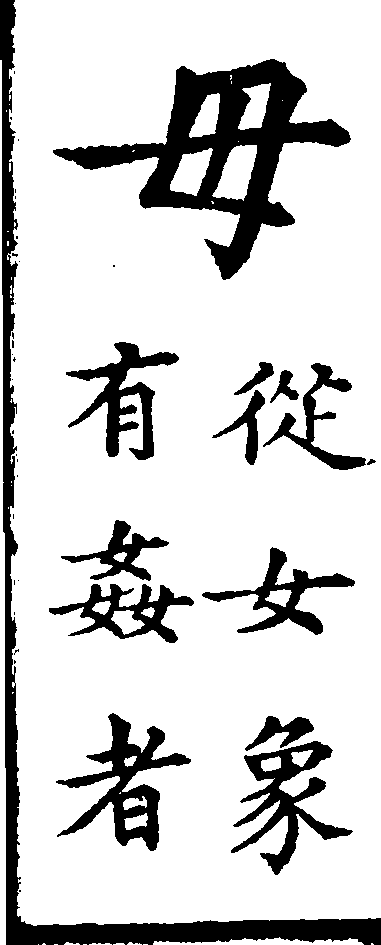 毋
從女象
有姦者